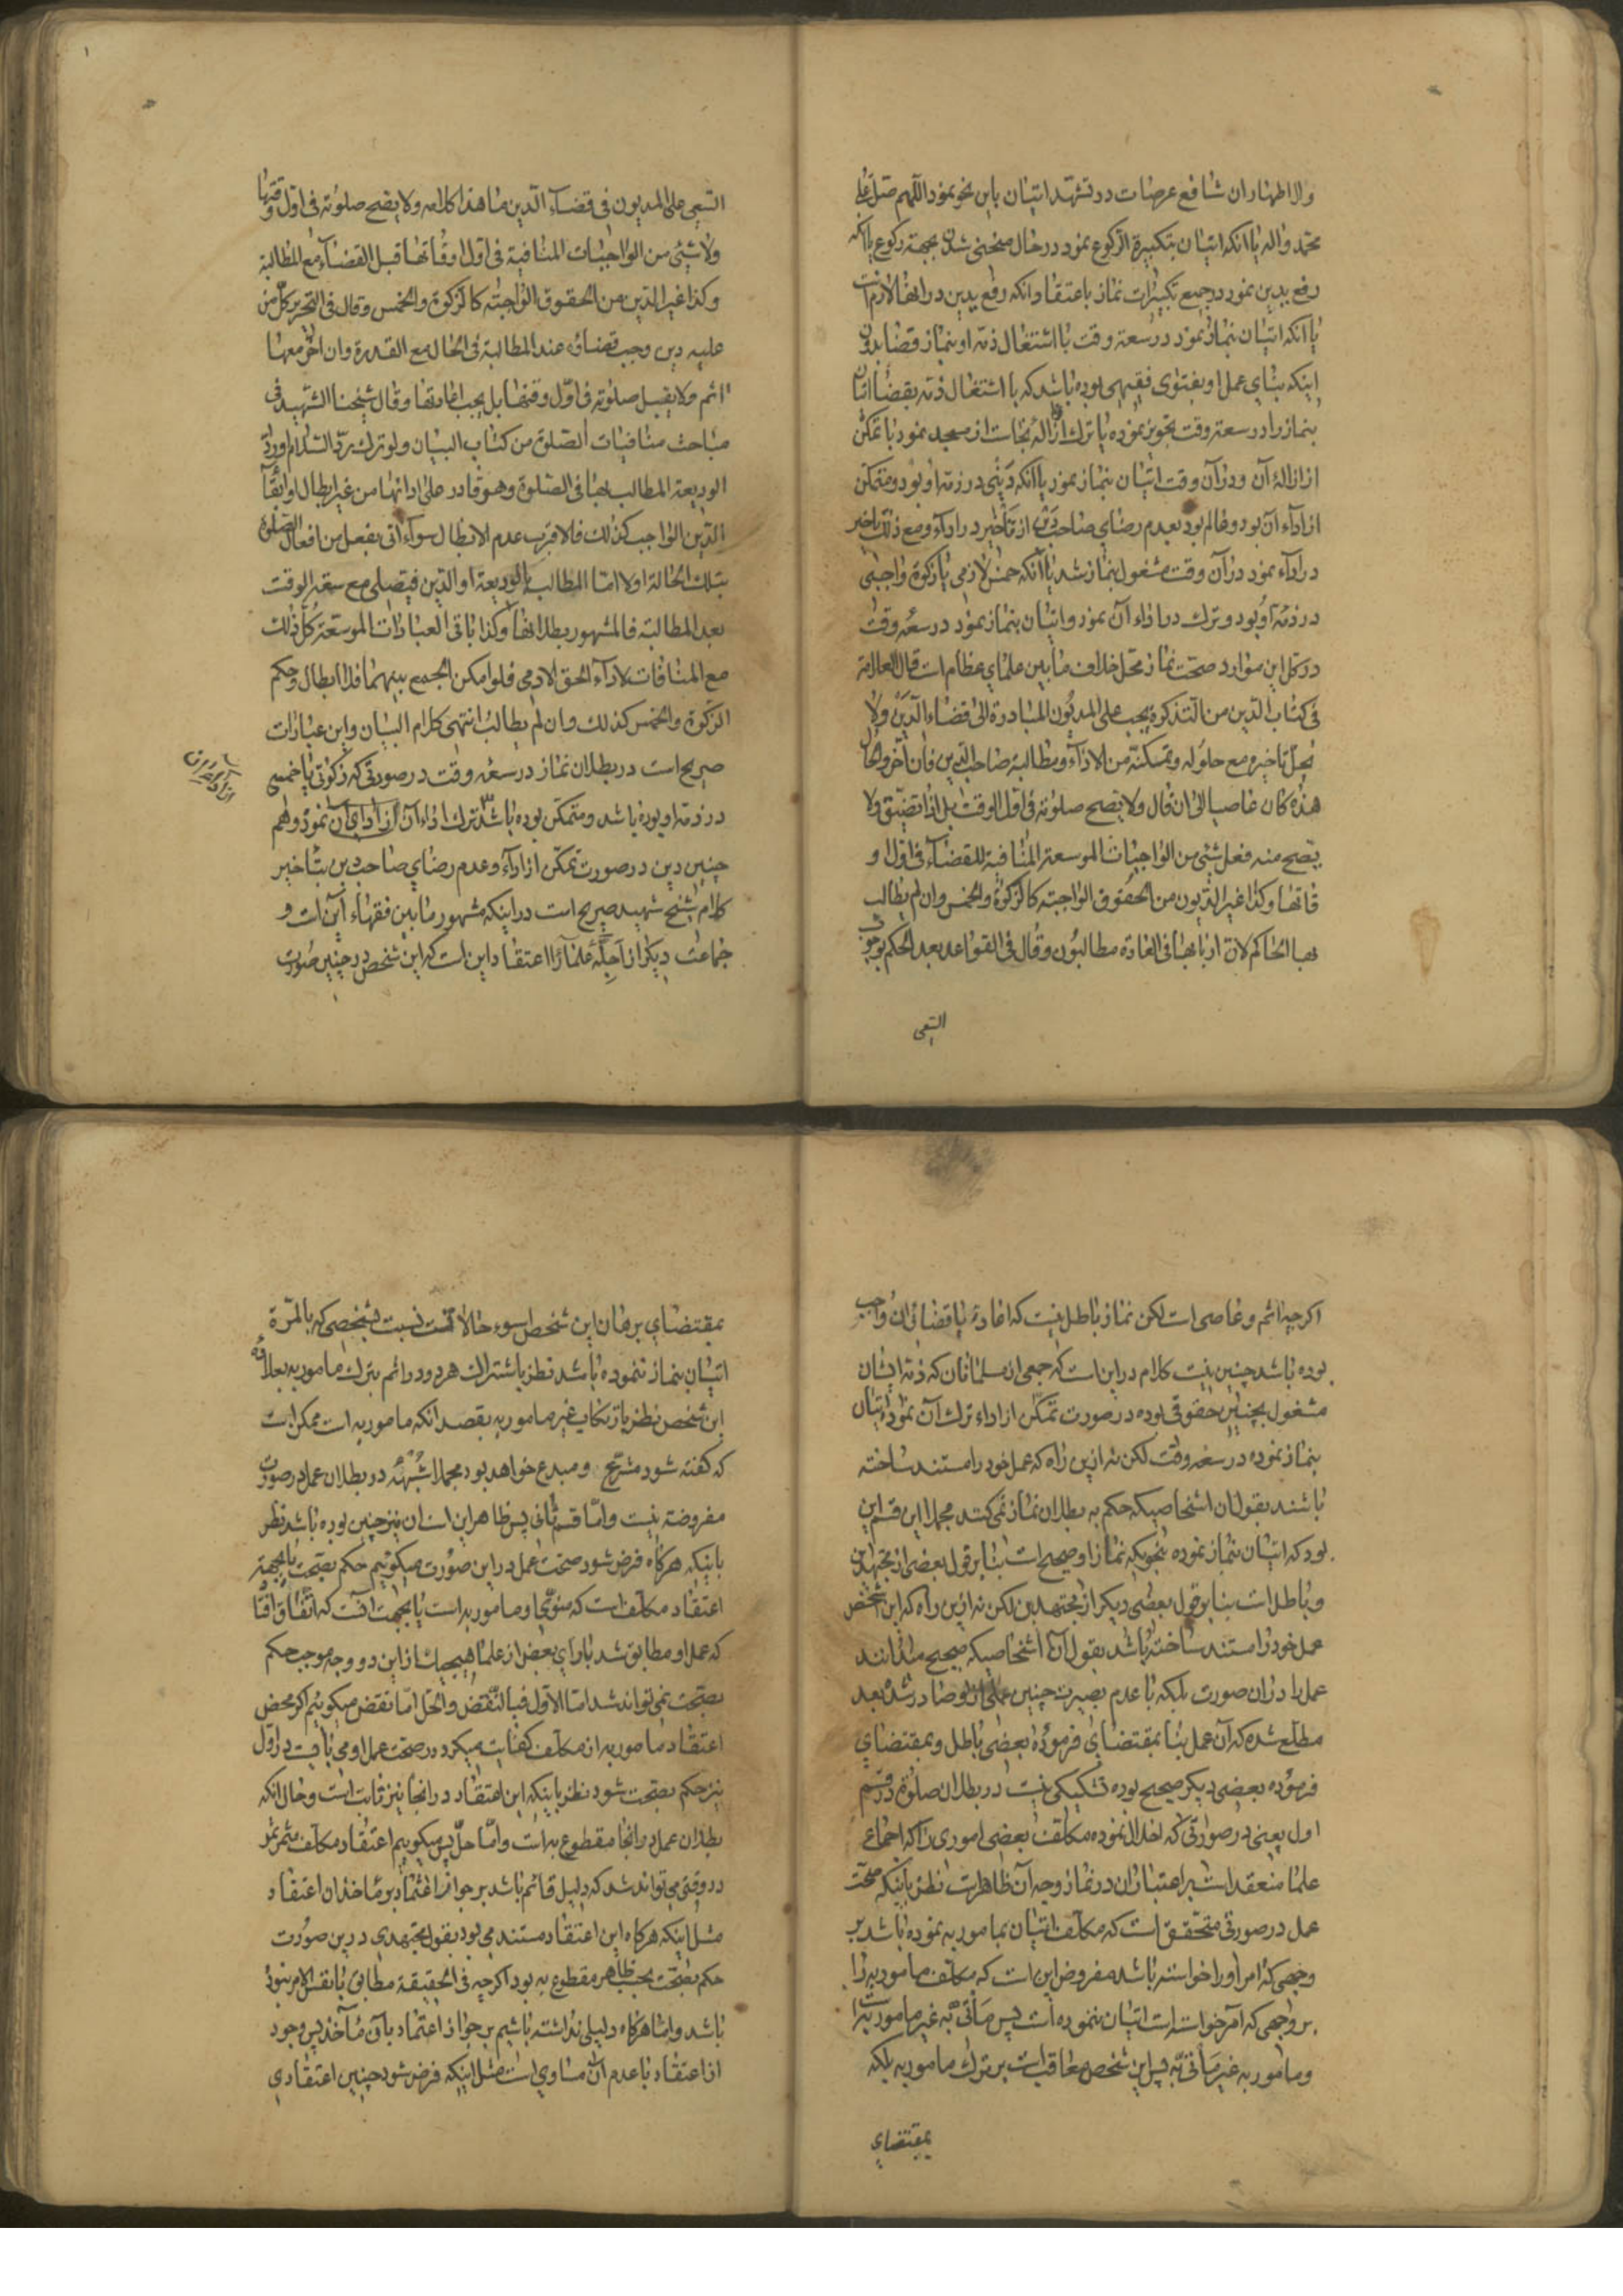 وال اطهار ان شافع عرصات در تشهد اتیان باین نحو نمود اللهم صل علی
محمد واله یا انکه اتیان بتکبیرة الرکوع نمود در حال منحنی شدن بجهة رکوع یا انکه
رفع یدین نمود در جمیع تکبیرات نماز باعتقاد انکه رفع یدین در انها لازم است
یا انکه اتیان بنماز نمود در سعة وقت با اشتغال ذمه او بنماز قضا بدون
اینکه بنای عمل او بفتوی فقیهی بوده باشد که با اشتغال ذمه بقضا اتیان
بنماز را در سعة وقت تجویز نموده یا ترک ازاله نجاست از مسجد نمود با تمکن
از ازالهٔ آن و در آن وقت اتیان بنماز نمود یا انکه دینی در ذمه او بود و متمکن
از اداء آن بود و عالم بود بعدم رضای صاحب دین از تأخیر در اداء و مع ذلک تاخیر
در اداء نمود در آن وقت مشغول بنماز شد یا انکه خمس لازمی یا زکوة واجبی
در ذمه او بود و ترک در اداء آن نمود و اتیان بنماز نمود در سعه وقت
در کل این موارد صحت نماز محل خلاف مابین علمای عظام است قال العلامة
فی کتاب الدین من التذکرة یجب علی المدیون المبادرة الی قضاء الدین ولا
یحل تاخیره مع حلوله وتمکنه من الاداء ومطالبة صاحب الدین فان اخر والحال
هذه کان عاصیا الی ان قال ولا تصح صلوته فی اول الوقت بل اذا تضیق ولا
یصح منه فعل شئ من الواجبات الموسعة المنافیة للقضاء فی اول او
قاتها وکذا غیر الدیون من الحقوق الواجبة کالزکوة والخمس وان لم یطالب
بها الحاکم لان اربابها فی العادة مطالبون وقال فی القواعد بعد الحکم بوجوب
السعی
السعی علی المدیون فی قضاء الدین ما هذا کلامه ولا یصح صلوته فی اول وقتها
ولا شئ من الواجبات المنافیة فی اول اوقاتها قبل القضاء مع المطالبة
وکذا غیر الدین من الحقوق الواجبة کالزکوة والخمس وقال فی التحریر کل من
علیه دین وجب قضاؤه عند المطالبة فی الحال مع القدرة وان اخر معها
اثم ولا یقبل صلوته فی اول وقتها بل یجب اعادتها وقال شیخنا الشهید فی
مباحث منافیات الصلوة من کتاب البیان ولو ترک رد السلام او رد
الودیعة المطالب بها فی الصلوة وهو قادر علی ادائها من غیر ابطال او ایفاء
الدین الواجب کذلک فالاقرب عدم الابطال سواء اتی بفعل من افعال الصلوة
بتلک الحالة او لا اما المطالب بالودیعة او الدین فیصلی مع سعة الوقت
بعد المطالبة فالمشهور بطلانها وکذا باقی العبادات الموسعة کل ذلک
مع المنافات لاداء الحق الادمی فلو امکن الجمع بینهما فلا ابطال وحکم
الزکوة والخمس کذلک وان لم یطالب انتهی کلام البیان واین عبارات
صریح است در بطلان نماز در سعه وقت در صورتی که زکوتی یا خمسی
در ذمه او بوده باشد و متمکن بوده باشد ترک اداء آن نمود وهم
چنین دین در صورت تمکن از اداء و عدم رضای صاحب دین بتاخیر
کلام شیخ شهید صریح است در اینکه مشهور مابین فقهاء این است و
جماعت دیگر از اجله علما را اعتقاد این است که این شخص در چنین صورت
اگرچه اثم و عاصی است لکن نماز باطل نیست که اعادهٔ یا قضای ان واجب
بوده باشد چنین نیست کلام در این است که جمعی از مسلمانان که ذمه ایشان
مشغول بچنین حقوقی بوده در صورت تمکن از اداء ترک آن نمود اتیان
بنماز نموده در سعه وقت لکن نه ازین راه که عمل خود را مستند ساخته
باشند بقول ان اشخاصیکه حکم به بطلان نماز نمی کنند مجملا این قسم این
بود که اتیان بنماز نموده بنحویکه نماز او صحیح است بنا بر قول بعضی از مجتهدین
و باطل است بنا بر قول بعضی دیگر از مجتهدین لکن نه ازین راه که این شخص
عمل خود را مستند ساخته باشد بقول آن اشخاصیکه صحیح میدانند
عمل را در ان صورت بلکه با عدم بصیرت چنین عملی از او صادر شده بعد
مطلع شده که آن عمل بنا بمقتضای فرمودهٔ بعضی باطل و بمقتضای
فرموده بعضی دیگر صحیح بوده تشکیکی نیست در بطلان صلوة در قسم
اول یعنی در صورتی که اخلال نموده مکلف بعضی اموری را که اجماع
علما منعقد است بر اعتبار ان در نماز وجه آن ظاهر است نظر باینکه صحت
عمل در صورتی متحقق است که مکلف اتیان بمامور به نموده باشد بر
وجهی که امر او را خواسته باشد مفروض این است که مکلف مامور به را
بر وجهی که آمر خواسته است اتیان ننموده است پس مأتی به غیر مامور به است
و مامور به غیر مأتی به پس این شخص معاقب است بر ترک مامور به بلکه
بمقتضای
بمقتضای برهان این شخص اسوء حالا است نسبت بشخصی که بالمرة
اتیان بنماز ننموده باشد نظر باشتراک هر دو در اثم بترک مامور به بعلاوه
این شخص نظر بارتکاب غیر مامور به بقصد انکه مامور به است ممکن است
که گفته شود مشرع و مبدع خواهد بود مجملا شبهه در بطلان عمل در صورت
مفروضه نیست واما قسم ثانی پس ظاهر این است ان نیز چنین بوده باشد نظر
باینکه هرگاه فرض شود صحت عمل در این صورت میگوئیم حکم بصحت یا بجهة
اعتقاد مکلف است که ماموربه است یا بجهت انست که اتفاقا
که عمل او مطابق شد با رای بعضی از علما هیچیک از این دو وجه موجب حکم
بصحت نمی تواند شد اما الاول فبالنقض والحل اما نقض میگوئیم اگر محض
اعتقاد مامور به از مکلف کفایت میکرد در صحت عمل او می بایست در اول
نیز حکم بصحت شود نظر باینکه این اعتقاد در انجا نیز ثابت است و حال انکه
بطلان عمل در انجا مقطوع به است واما حل پس میگوییم اعتقاد مکلف مثمر ثمر
در وقتی می تواند شد که دلیل قائم باشد بر جواز اعتماد بر مأخذ ان اعتقاد
مثل اینکه هرگاه این اعتقاد مستند می بود بقول مجتهدی درین صورت
حکم بصحت بحسب ظاهر مقطوع به بود اگرچه فی الحقیقة مطابق با نفس الامر نبوده
باشد واما هرگاه دلیلی نداشته باشیم بر جواز اعتماد بان مأخذ پس وجود
ان اعتقاد با عدم ان مساوی است مثل اینکه فرض شود چنین اعتقادی